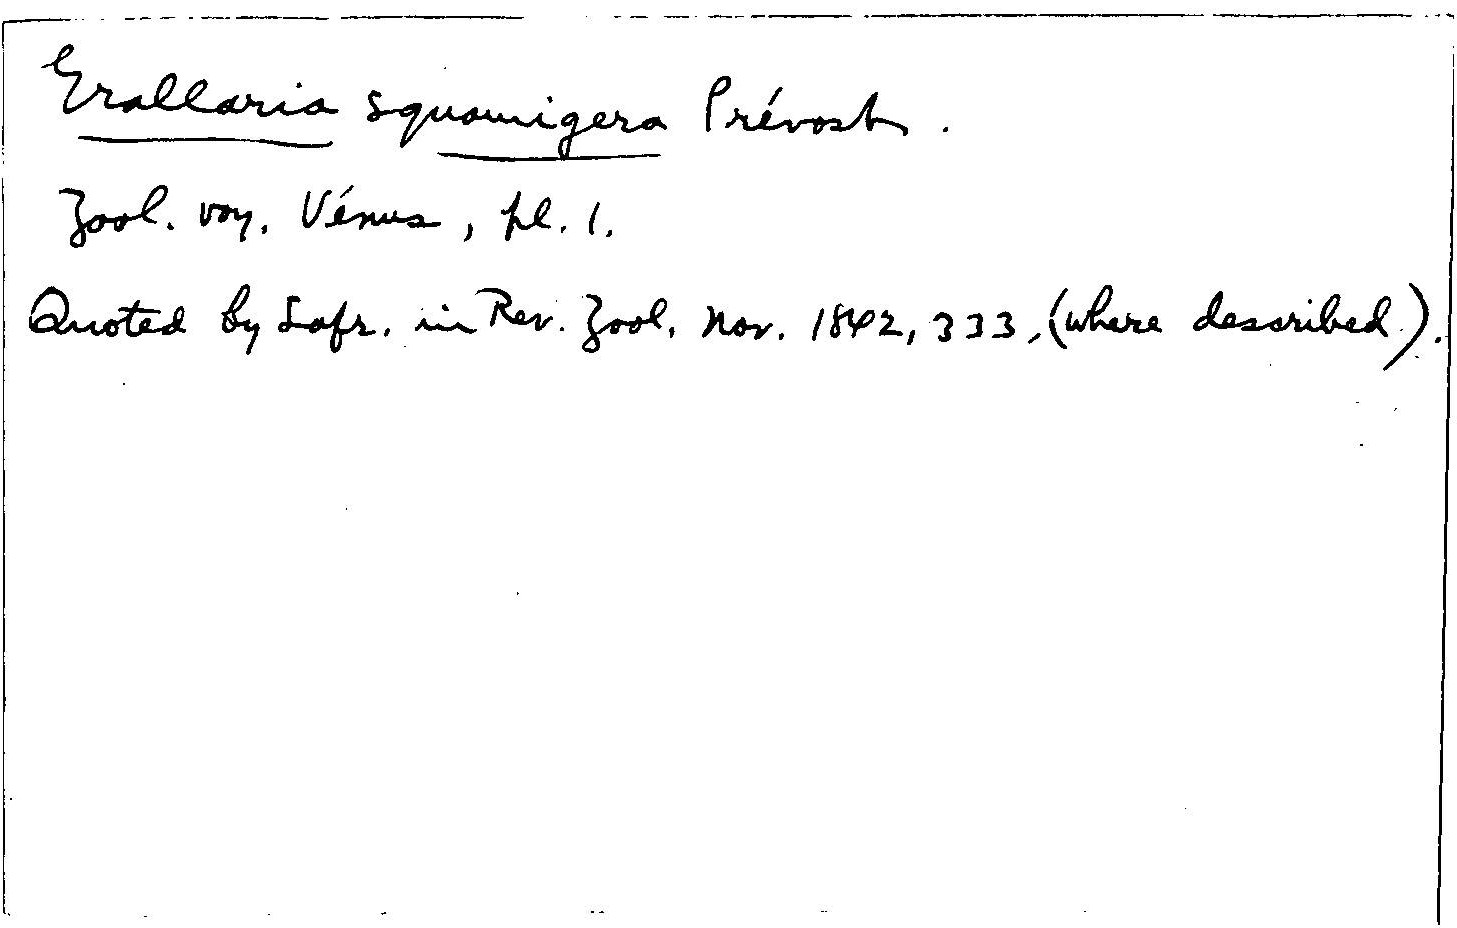 Grallaria squamigera Prévost.
Zool. voy. Vénus, pl. 1.
Quoted by Lafr. in Rev. Zool. Nov. 1842, 333, (where described).